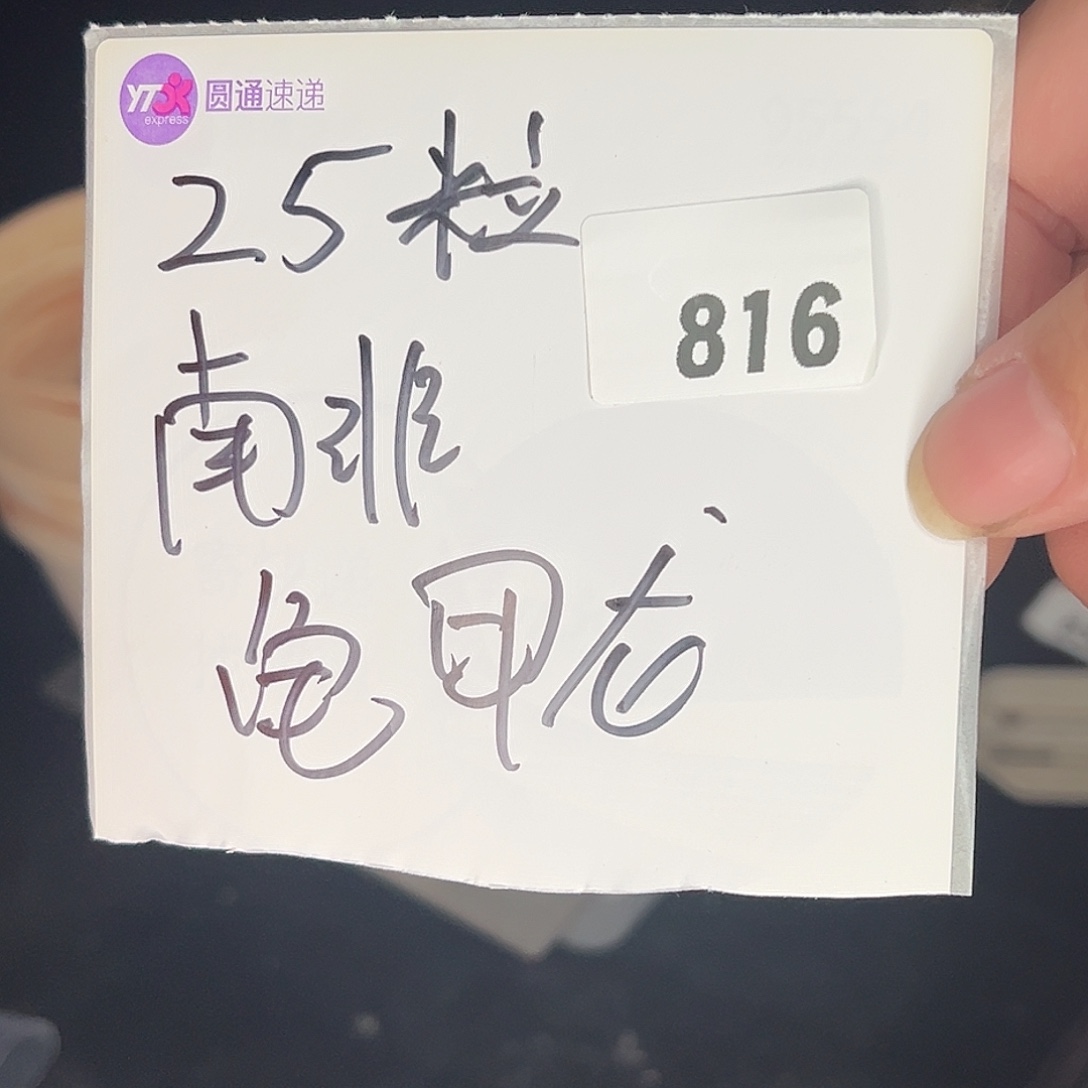 YTO express 圆通速递
25粒
816
南非
龟甲龙